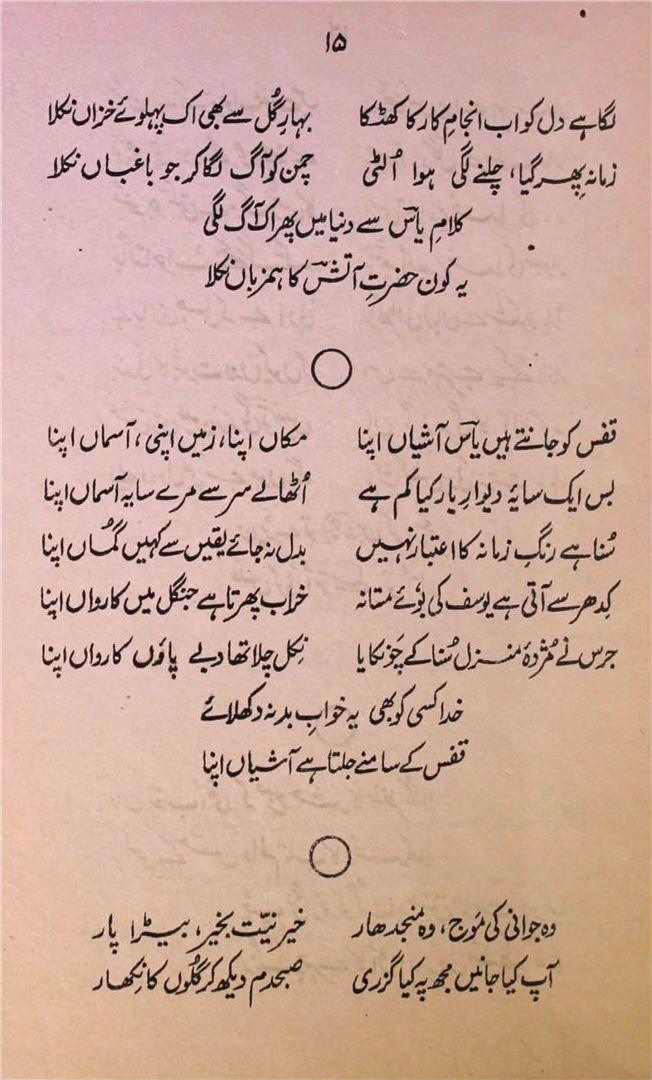 ۱۵
لگا ہے دل کو اب انجامِ کار کا کھٹکا بہارِ گُل سے بھی اک پہلوئے خزاں نکلا
زمانہ پھر گیا، چلنے لگی ہوا اُلٹی چمن کو آگ لگا کر جو باغباں نکلا
کلامِ یاسؔ سے دنیا میں پھر اک آگ لگی
یہ کون حضرتِ آتشؔ کا ہمزباں نکلا
قفس کو جانتے ہیں یاسؔ آشیاں اپنا مکاں اپنا، زمیں اپنی، آسماں اپنا
بس ایک سایۂ دیوارِ یار کیا کم ہے اُٹھالے سر سے مرے سایہ آسماں اپنا
سُنا ہے رنگِ زمانہ کا اعتبار نہیں بدل نہ جائے یقیں سے کہیں گُماں اپنا
کِدھر سے آتی ہے یوسف کی بُوئے مستانہ خراب پھرتا ہے جنگل میں کارواں اپنا
جرس نے مُژدۂ منزل سُنا کے چَونکایا نِکل چلا تھا دبے پاؤں کارواں اپنا
خدا کسی کو بھی یہ خوابِ بد نہ دکھلائے
قفس کے سامنے جلتا ہے آشیاں اپنا
وہ جوانی کی مَوج، وہ منجدھار خیر نیّت بخیر، بیڑا پار
آپ کیا جانیں مجھ پہ کیا گزری صبحدم دیکھ کر گلُوں کا نِکھار